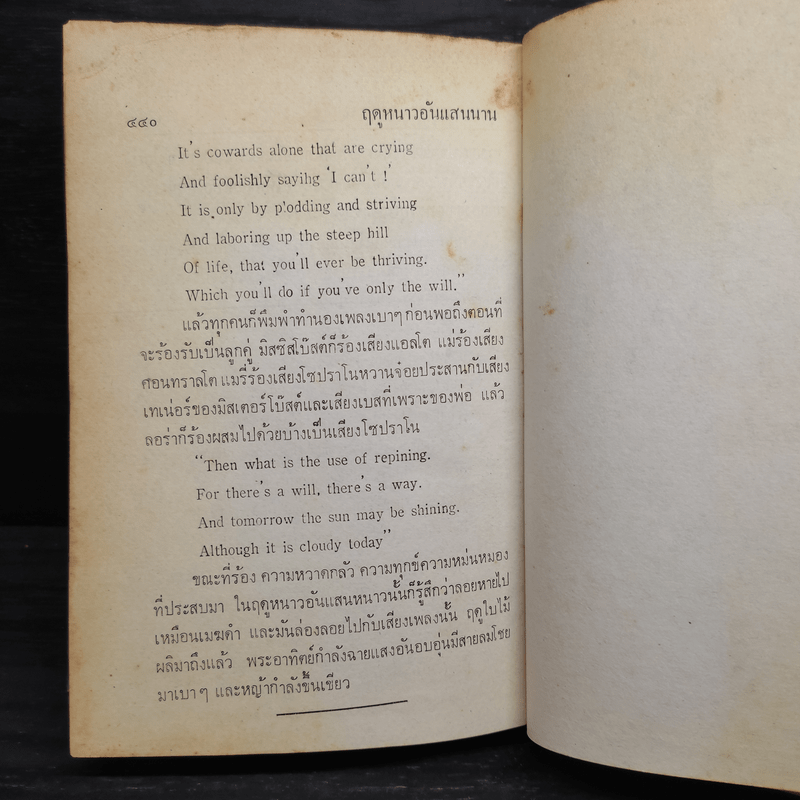 ๔๔๐ ฤดูหนาวอันแสนนาน
It's cowards alone that are crying
And foolishly sayihg 'I can't !'
It is only by p'odding and striving
And laboring up the steep hill
Of life, that you'll ever be thriving.
Which you'll do if you've only the will."
แล้วทุกคนก็พึมพำทำนองเพลงเบาๆ ก่อนพอถึงตอนที่
จะร้องรับเป็นลูกคู่ มิสซิสโบ๊สต์ก็ร้องเสียงแอลโต แม่ร้องเสียง
คอนทราลโต แมรี่ร้องเสียงโซปราโนหวานจ๋อยประสานกับเสียง
เทเน่อร์ของมิสเตอร์โบ๊สต์และเสียงเบสที่เพราะของพ่อ แล้ว
ลอร่าก็ร้องผสมไปด้วยบ้างเป็นเสียงโซปราโน
"Then what is the use of repining.
For there's a will, there's a way.
And tomorrow the sun may be shining.
Although it is cloudy today"
ขณะที่ร้อง ความหวาดกลัว ความทุกข์ความหม่นหมอง
ที่ประสบมา ในฤดูหนาวอันแสนหนาวนั้นก็รู้สึกว่าลอยหายไป
เหมือนเมฆดำ และมันล่องลอยไปกับเสียงเพลงนั้น ฤดูใบไม้
ผลิมาถึงแล้ว พระอาทิตย์กำลังฉายแสงอันอบอุ่นมีสายลมโชย
มาเบาๆ และหญ้ากำลังขึ้นเขียว